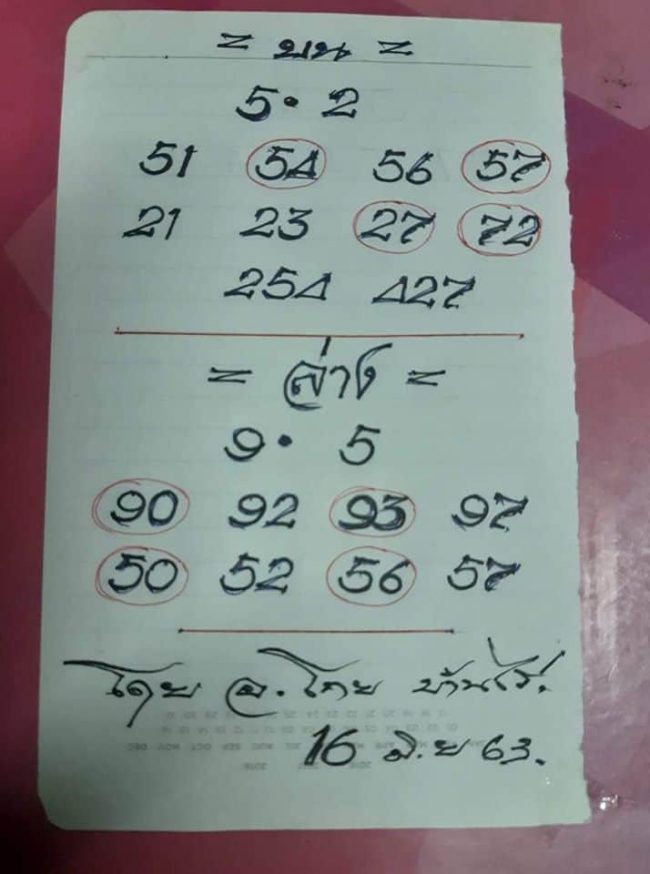 = บน =
5 • 2
51 54 56 57
21 23 27 72
254 427
= ล่าง =
9 • 5
90 92 93 97
50 52 56 57
โดย อ. โกย บ้านไร่.
16 มิ.ย 63.